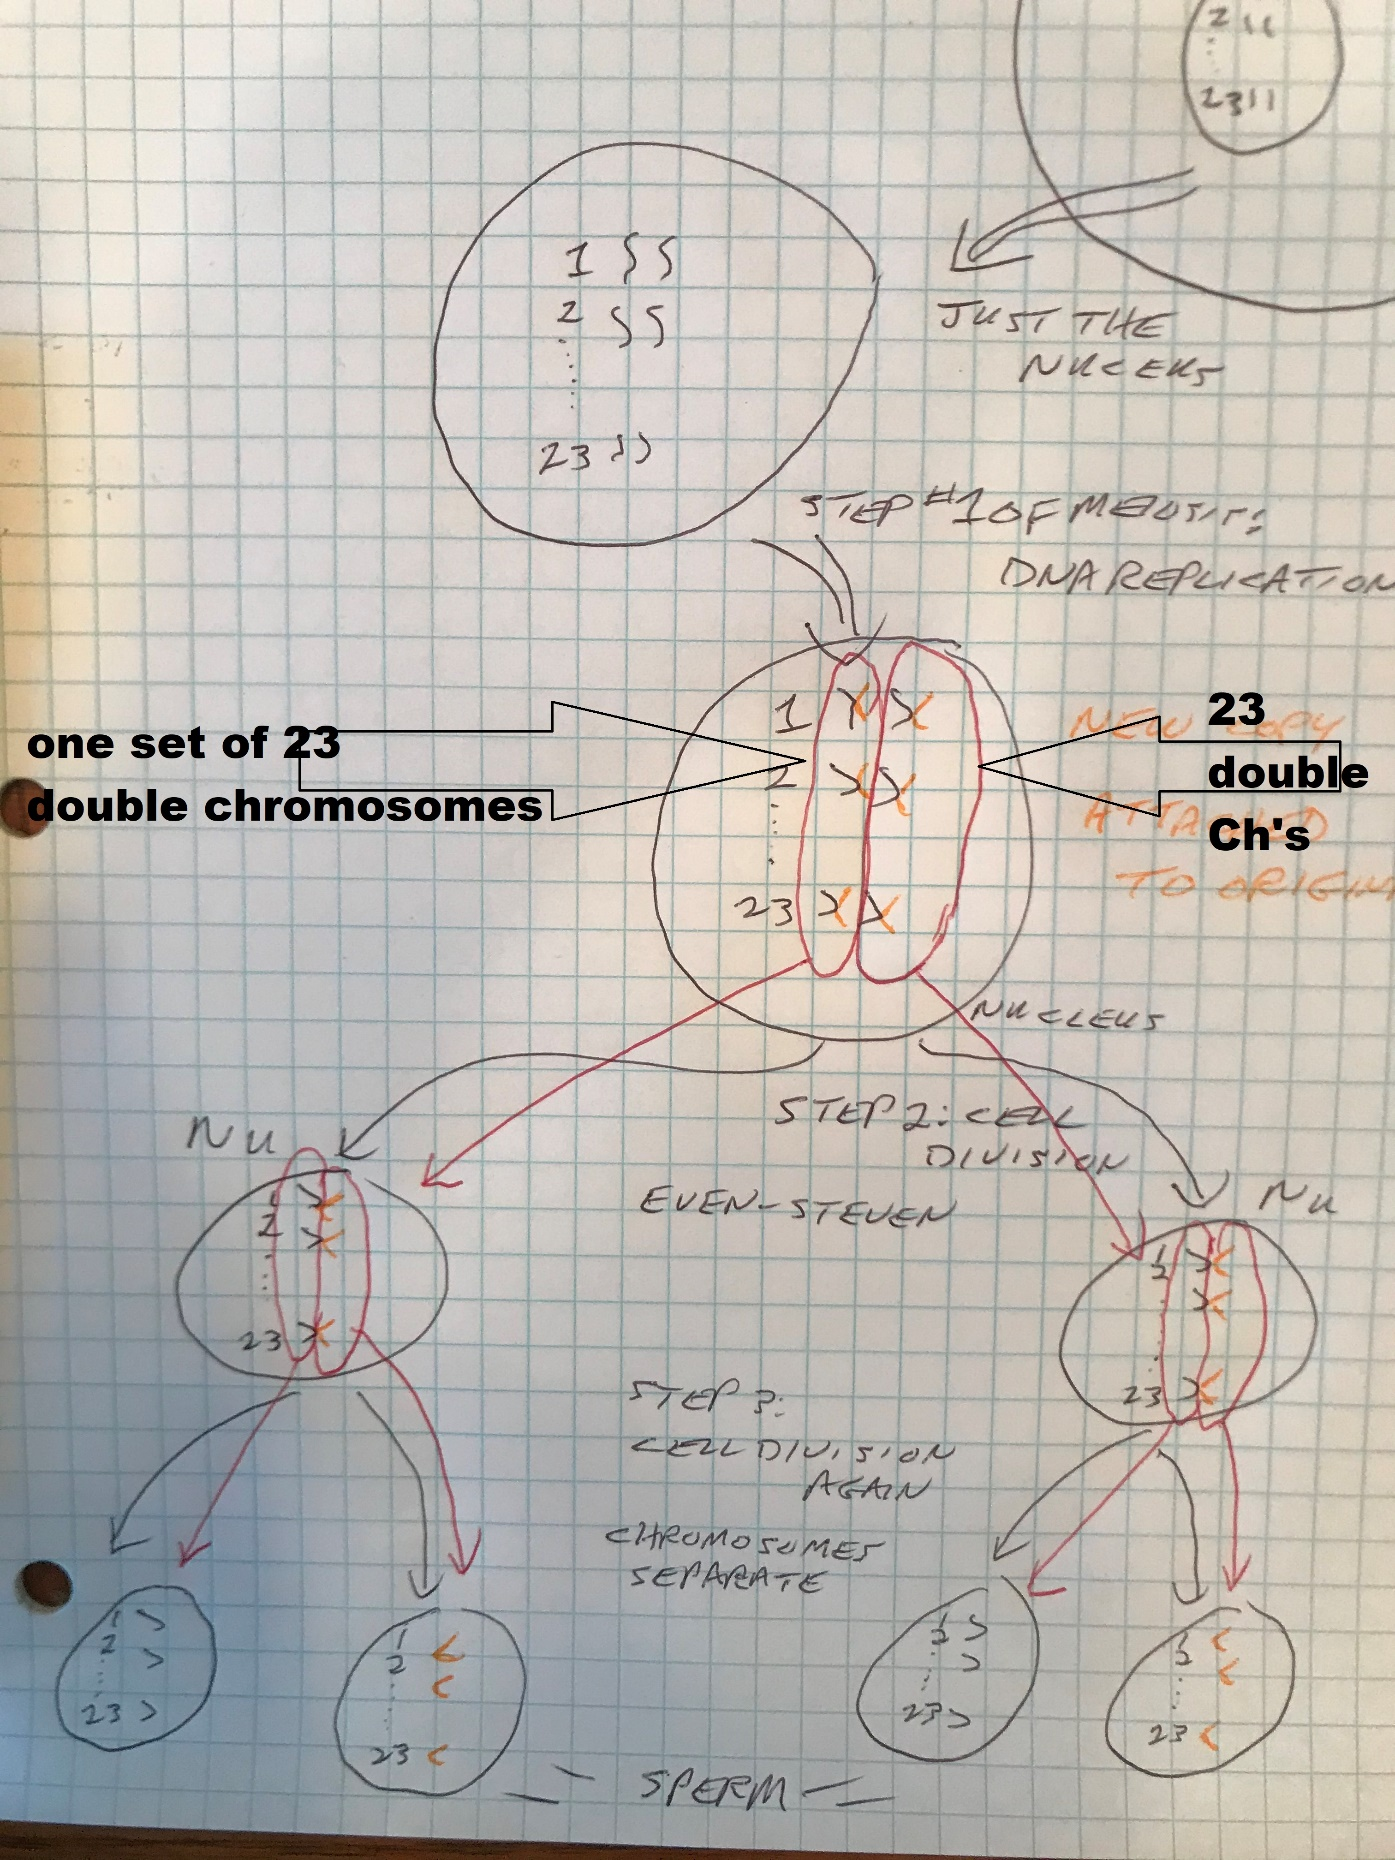 2 11
2311
1 SS
2 SS
23
JUST THE
NUCEUS
STEP #1 OF MEOSIS:
DNA REPLICATION
1
2
23
one set of 23
double chromosomes
23
double
Ch's
NEW COPY
ATTACHED
TO ORIGIN
NUCLEUS
STEP 2: CELL
DIVISION
EVEN-STEVEN
NU
1
2
23
NU
1
2
23
STEP 3:
CELL DIVISION
AGAIN
CHROMOSOMES
SEPARATE
1
2
23
1
2
23
1
2
23
1
2
23
SPERM